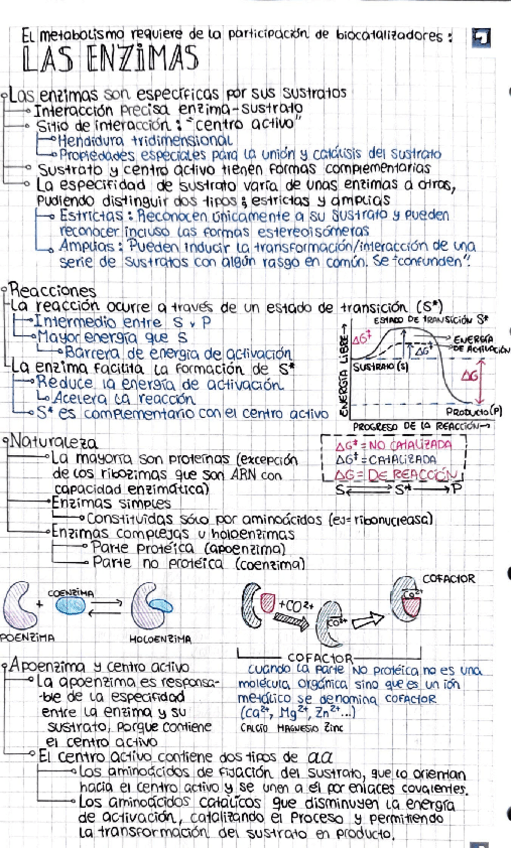 El metabolismo requiere de la participación de biocatalizadores:
LAS ENZIMAS
Las enzimas son específicas por sus sustratos
Interacción precisa enzima-sustrato
Sitio de interacción: "centro activo"
Hendidura tridimensional
Propiedades especiales para la unión y catálisis del sustrato
Sustrato y centro activo tienen formas complementarias
La especifidad de sustrato varía de unas enzimas a otras,
pudiendo distinguir dos tipos; estrictas y amplias
Estrictas: Reconocen únicamente a su sustrato y pueden
reconocer incluso las formas estereoisómeras
Amplias: Pueden inducir la transformación/interacción de una
serie de sustratos con algún rasgo en común. Se "confunden".
Reacciones
La reacción ocurre a través de un estado de transición (S*)
Intermedio entre S y P
Mayor energía que S
Barrera de energía de activación
La enzima facilita la formación de S*
Reduce la energía de activación
Acelera la reacción
S* es complementario con el centro activo
ESTADO DE TRANSICIÓN S*
ENERGÍA DE ACTIVACIÓN
ENERGÍA LIBRE
ΔG‡
ΔG‡
ΔG
SUSTRATO (S)
PRODUCTO (P)
PROGRESO DE LA REACCIÓN
ΔG‡ = NO CATALIZADA
ΔG‡ = CATALIZADA
ΔG = DE REACCIÓN
S S* P
Naturaleza
La mayoría son proteínas (excepción
de los ribozimas que son ARN con
capacidad enzimática)
Enzimas simples
Constituidas sólo por aminoácidos (ej= ribonucleasa)
Enzimas complejas u holoenzimas
Parte protéica (apoenzima)
Parte no protéica (coenzima)
COENZIMA
+
POENZIMA
HOLOENZIMA
+CO2+
CO2+
CO2+
COFACTOR
COFACTOR
Cuando la parte no protéica no es una
molécula orgánica sino que es un ión
metálico se denomina COFACTOR
(Ca2+, Mg2+, Zn2+...)
CALCIO MAGNESIO ZINC
Apoenzima y centro activo
La apoenzima es responsa-
-ble de la especifidad
entre la enzima y su
sustrato, porque contiene
el centro activo
El centro activo contiene dos tipos de aa
Los aminoácidos de fijación del sustrato, que lo orientan
hacia el centro activo y se unen a él por enlaces covalentes.
Los aminoácidos catalícos que disminuyen la energía
de activación, catalizando el proceso y permitiendo
la transformación del sustrato en producto.